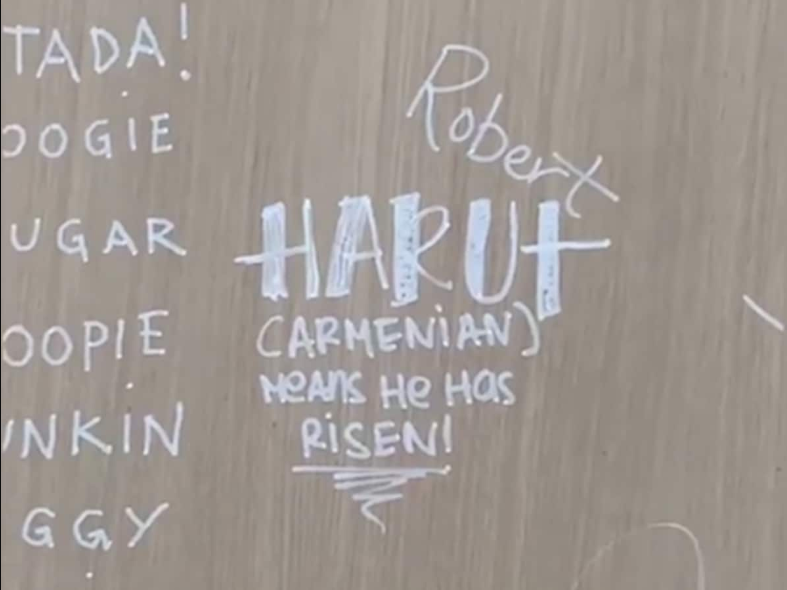 TADA!
OOGIE
UGAR
OOPIE
UNKIN
GGY
Robert
HARUt
(ARMENiAN)
MeANS He HAS
RiSEN!